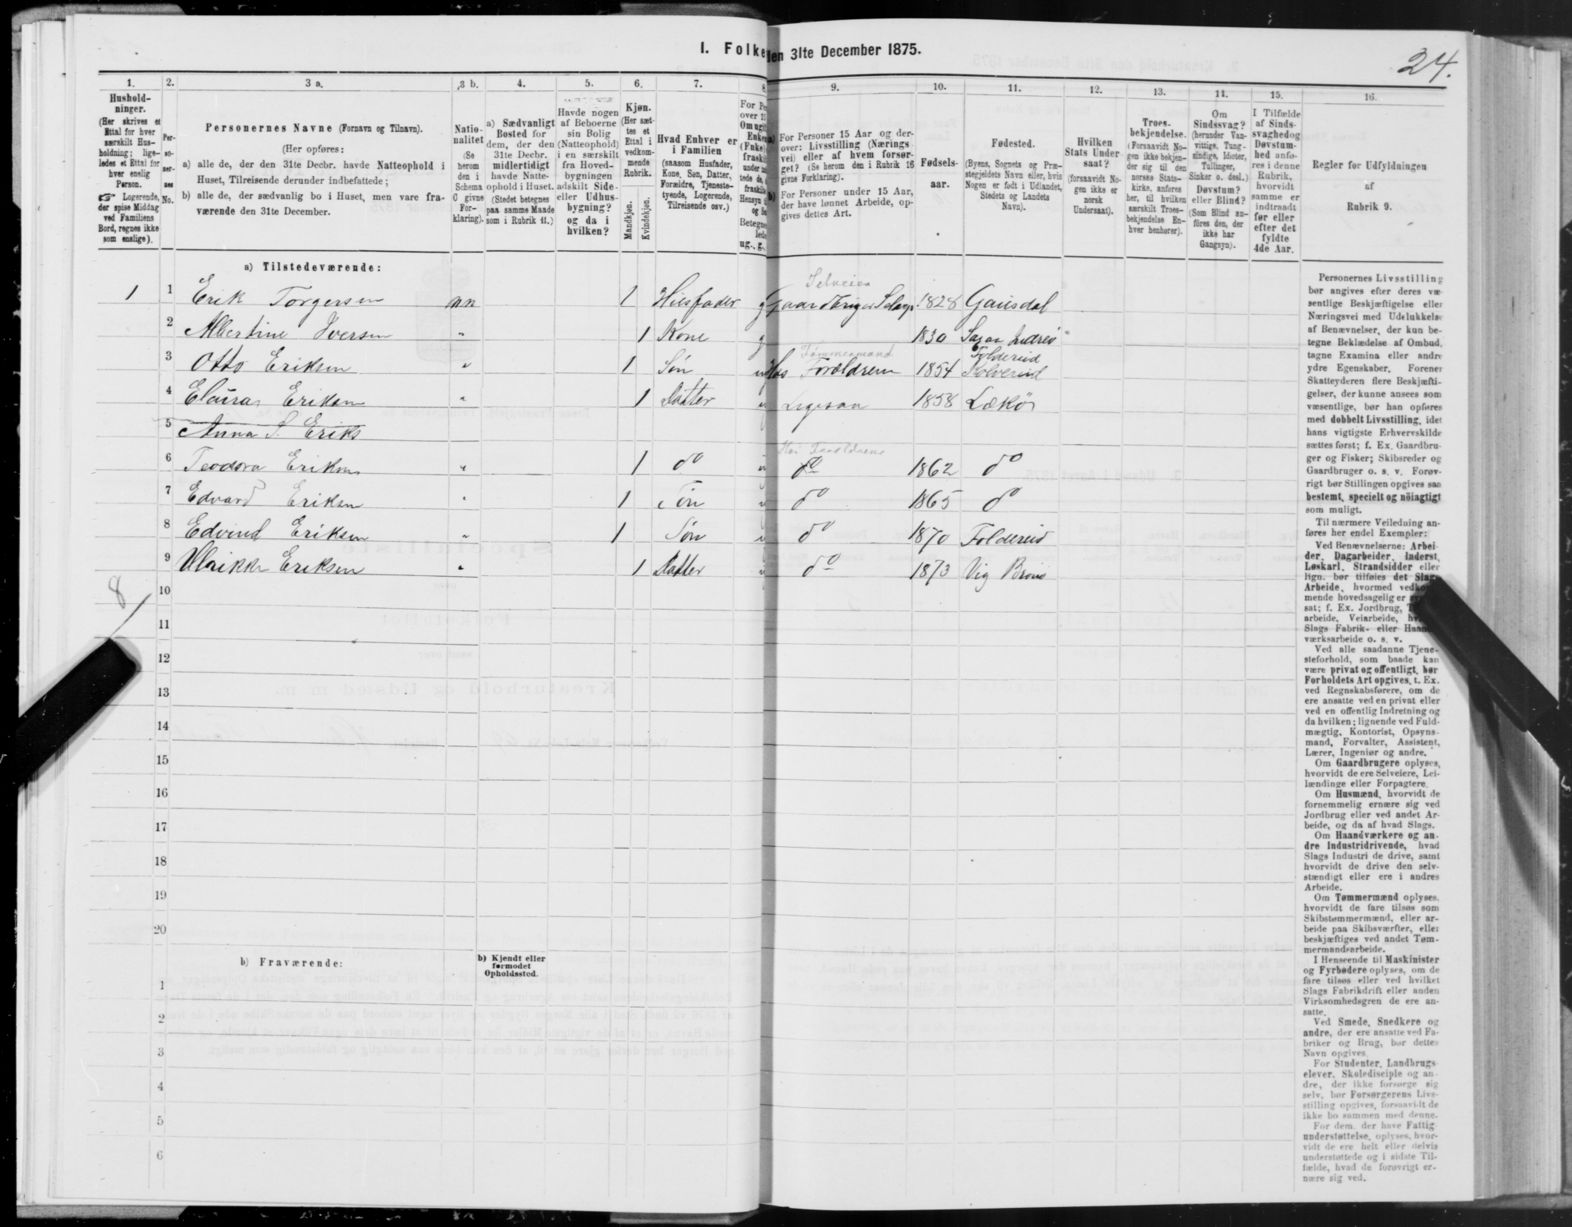 I. Folke den 31te December 1875.
24.
1. 2. 3 a. 3 b. 4. 5. 6. 7. 8. 9. 10. 11. 12. 13. 14. 15. 16.
Hushold-
ninger.
(Her skrives et
Ettal for hver
særskilt Hus-
holdning; lige-
ledes et Ettal for
hver enslig
Person.
☞ Logerende,
der spise Middag
ved Familiens
Bord, regnes ikke
som enslige).
Per-
so-
ner-
nes
No.
Personernes Navne (Fornavn og Tilnavn).
(Her opføres:
a) alle de, der den 31te Decbr. havde Natteophold i
Huset, Tilreisende derunder indbefattede;
b) alle de, der sædvanlig bo i Huset, men vare fra-
værende den 31te December.
Natio-
nalitet
(Se
herom
den i
Schema
C givne
For-
klaring).
a) Sædvanligt
Bosted for
dem, der den
31te Decbr.
midlertidigt
havde Natte-
ophold i Huset.
(Stedet betegnes
paa samme Maade
som i Rubrik 11.)
Havde nogen
af Beboerne
sin Bolig
(Natteophold)
i en særskilt
fra Hoved-
bygningen
adskilt Side-
eller Udhus-
bygning?
og da i
hvilken?
Kjøn.
(Her sæt-
tes et
Ettal i
vedkom-
mende
Rubrik.
Mandkjøn.
Kvindekjøn.
Hvad Enhver er
i Familien
(saasom Husfader,
Kone, Søn, Datter,
Forældre, Tjeneste-
tyende, Logerende,
Tilreisende osv.)
For Pe
over 15
Om ugift
Enke
(Fnke)
fraskil
ug., g.,
For Personer 15 Aar og der-
over: Livsstilling (Nærings-
vei) eller af hvem forsør-
get? (Se herom den i Rubrik 16
givne Forklaring).
For Personer under 15 Aar,
der have lønnet Arbeide, op-
gives dettes Art.
Fødsels-
aar.
Fødested.
(Byens, Sognets og Præ-
stegjeldets Navn eller, hvis
Nogen er født i Udlandet,
Stedets og Landets
Navn).
Hvilken
Stats Under
saat?
(forsaavidt No-
gen ikke er
norsk
Undersaat).
Troes-
bekjendelse.
(Forsaavidt No-
gen ikke bekjen-
der sig til den
norske Stats-
kirke, anføres
her, til hvilken
særskilt Troes-
bekjendelse En-
hver henhører).
Om
Sindssvag?
(herunder Van-
vittige, Tung-
sindige, Idioter,
Tullinger,
Sinker o. desl.)
Døvstum?
eller Blind?
(Som Blind an-
føres den, der
ikke har
Gangsyn).
I Tilfælde
af Sinds-
svaghed og
Døvstum-
hed anfø-
res i denne
Rubrik,
hvorvidt
samme er
indtraadt
før eller
efter det
fyldte
4de Aar.
Regler for Udfyldningen
af
Rubrik 9.
a) Tilstedeværende:
Selveier
1 1 Erik Torgersen nn 1 Husfader g Gaardbruger 1828 Gausdal
2 Albertine Iversen " 1 Kone g 1830
Tømmermand Foldereid
3 Otto Eriksen " 1 Søn u Hos Forældrene 1854 Kolvereid
4 Eriksen " 1 Datter u Ligesaa 1858 Lækø
5 Anna S. Eriks
Hos Forældrene
6 Teodora Eriksen " 1 do u do 1862 do
7 Edvard Eriksen " 1 Søn u do 1865 do
8 Edvind Eriksen " 1 Søn u do 1870 Foldereid
9 Ulrikke Eriksen " 1 Datter u do 1873 Vig
8
10
11
12
13
14
15
16
17
18
19
20
b) Fraværende:
b) Kjendt eller
formodet
Opholdssted.
1
2
3
4
5
6
Personernes Livsstilling
bør angives efter deres væ-
sentlige Beskjæftigelse eller
Næringsvei med Udelukkelse
af Benævnelser, der kun be-
tegne Beklædelse af Ombud,
tagne Examina eller andre
ydre Egenskaber. Forener
Skatteyderen flere Beskjæfti-
gelser, der kunne ansees som
væsentlige, bør han opføres
med dobbelt Livsstilling, idet
hans vigtigste Erhvervskilde
sættes først; f. Ex. Gaardbru-
ger og Fisker; Skibsreder og
Gaardbruger o. s. v. Forøv-
rigt bør Stillingen opgives saa
bestemt, specielt og nöiagtigt
som muligt.
Til nærmere Veiledning an-
føres her endel Exempler:
Ved Benævnelserne: Arbei-
der, Dagarbeider, Inderst,
Løskarl, Strandsidder eller
lign. bør tilføies det Slags
Arbeide, hvormed
mende hovedsagelig er
sat; f. Ex. Jordbrug,
arbeide, Veiarbeide,
Slags Fabrik- eller Haand
værksarbeide o. s. v.
Ved alle saadanne Tjene-
steforhold, som baade kan
være privat og offentligt, bør
Forholdets Art opgives, t. Ex.
ved Regnskabsførere, om de
ere ansatte ved en privat eller
ved en offentlig Indretning og
da hvilken; lignende ved Fuld-
mægtig, Kontorist, Opsyns-
mand, Forvalter, Assistent,
Lærer, Ingeniør og andre.
Om Gaardbrugere oplyses,
hvorvidt de ere Selveiere, Lei-
lændinge eller Forpagtere.
Om Husmænd, hvorvidt de
fornemmelig ernære sig ved
Jordbrug eller ved andet Ar-
beide, og da af hvad Slags.
Om Haandværkere og an-
dre Industridrivende, hvad
Slags Industri de drive, samt
hvorvidt de drive den selv-
stændigt eller ere i andres
Arbeide.
Om Tømmermænd oplyses,
hvorvidt de fare tilsøs som
Skibstømmermænd, eller ar-
beide paa Skibsværfter, eller
beskjæftiges ved andet Tøm-
mermandsarbeide.
I Henseende til Maskinister
og Fyrbødere oplyses, om de
fare tilsøs eller ved hvilket
Slags Fabrikdrift eller anden
Virksomhedsgren de ere an-
satte.
Ved Smede, Snedkere og
andre, der ere ansatte ved Fa-
briker og Brug, bør dettes
Navn opgives.
For Studenter, Landbrugs-
elever, Skoledisciple og an-
dre, der ikke forsørge sig
selv, bør Forsørgerens Livs-
stilling opgives, forsaavidt de
ikke bo sammen med denne.
For dem, der have Fattig-
understøttelse, oplyses, hvor-
vidt de ere helt eller delvis
understøttede og i sidste Til-
fælde, hvad de forøvrigt er-
nære sig ved.